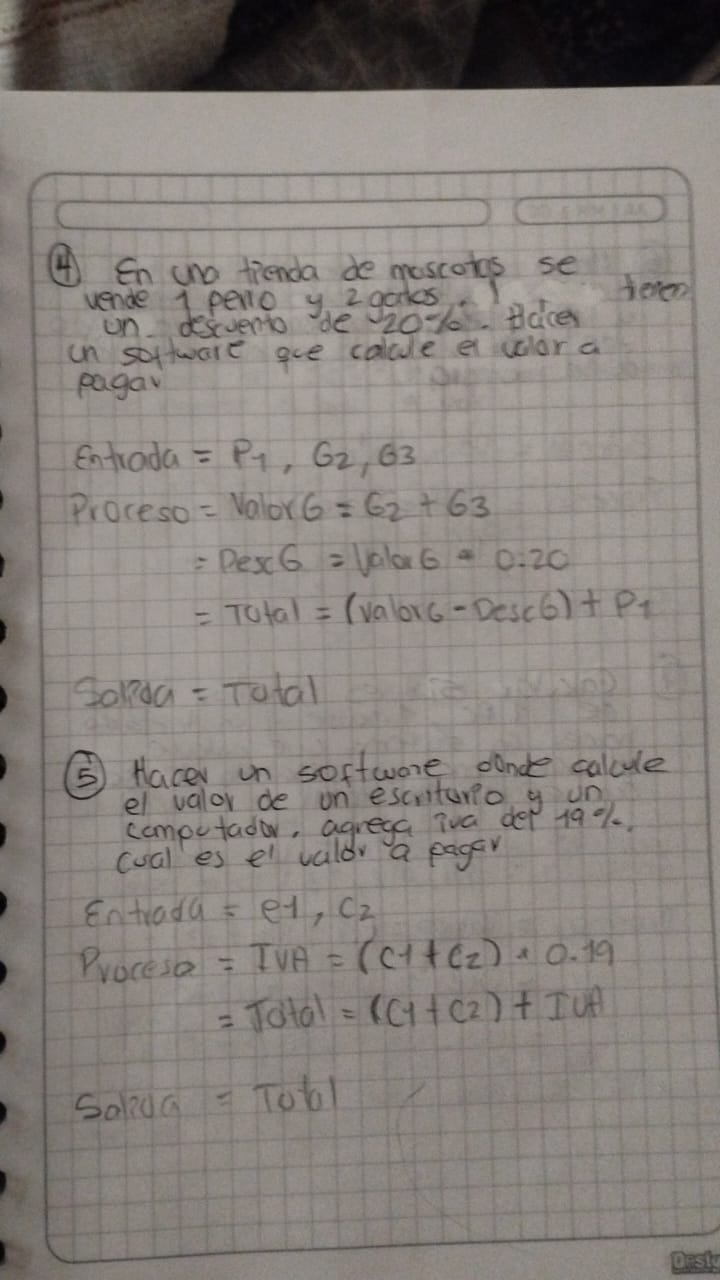 ④ En una tienda de mascotas se
vende 1 perro y 2 gatos. tienen
un descuento de 20%. Hacer
un software que calcule el valor a
pagar
Entrada = P1, G2, G3
Proceso = ValorG = G2 + G3
= DescG = ValorG * 0.20
= Total = (ValorG - DescG) + P1
Salida = Total
⑤ Hacer un software donde calcule
el valor de un escritorio y un
computador, agrega iva del 19%.
cual es el valor a pagar
Entrada = e1, C2
Proceso = IVA = (C1 + C2) * 0.19
= Total = (C1 + C2) + IVA
Salida = Total